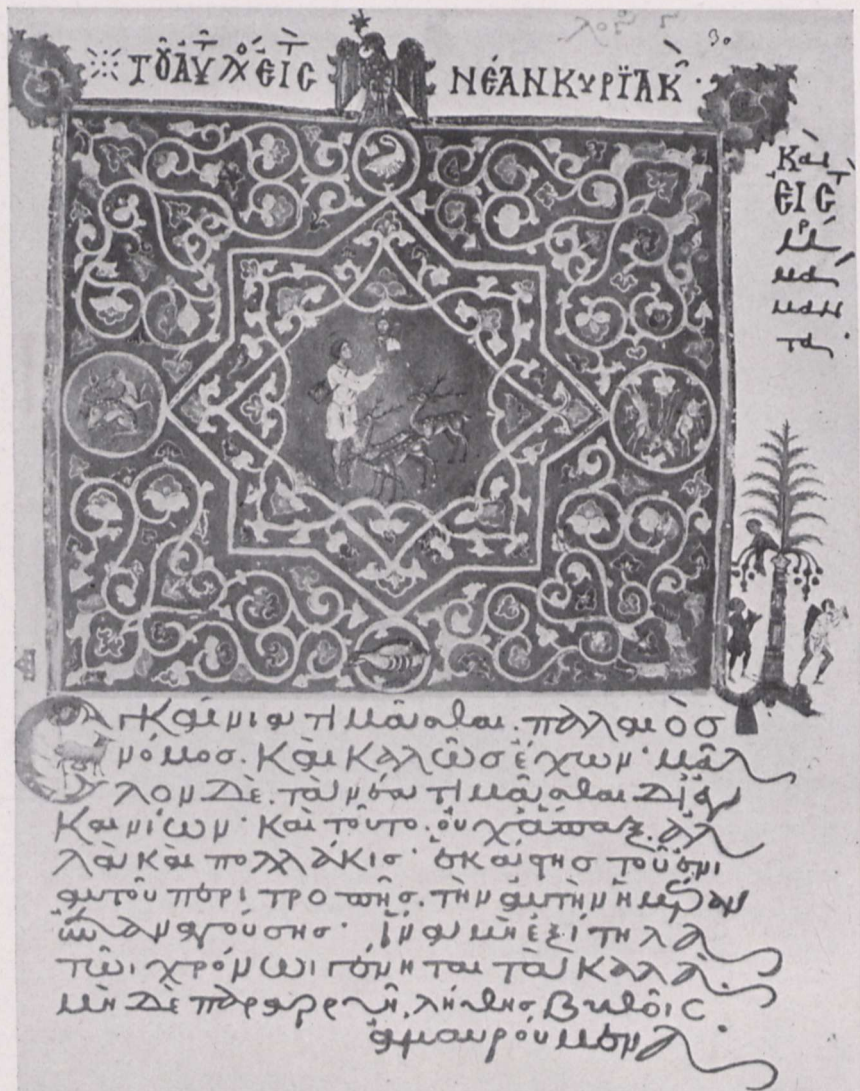 ΤΟΥ ΑΥΤ ΛΟ ΕΙС Τ ΝΈΑΝ ΚΥΡΙΑΚ
30
Καὶ
ΕΙС Τ
μρ
μά
μαν
τα
Ἐγκαίνια τιμᾶσθαι. παλαιὸσ
νόμοσ. Καὶ καλῶσ ἔχων· μᾶλ
λον δὲ. τὰ νέα τιμᾶσθαι δι ἐγ
καινίων· καὶ τοῦτο. οὐχ ἅπαξ. ἀλ
λὰ καὶ πολλάκισ· ἑκάστησ τοῦ ἐνι
αυτοῦ περιτροπῆσ. τὴν αὐτὴν ἡμέραν
ἐπαναγούσησ· ἵνα μὴ ἐξίτηλα
τῶι χρόνωι γένηται τὰ καλὰ.
μὴ δὲ παραρρυῆ, λήθησ βυθοῖς
ἀμαυρούμενα